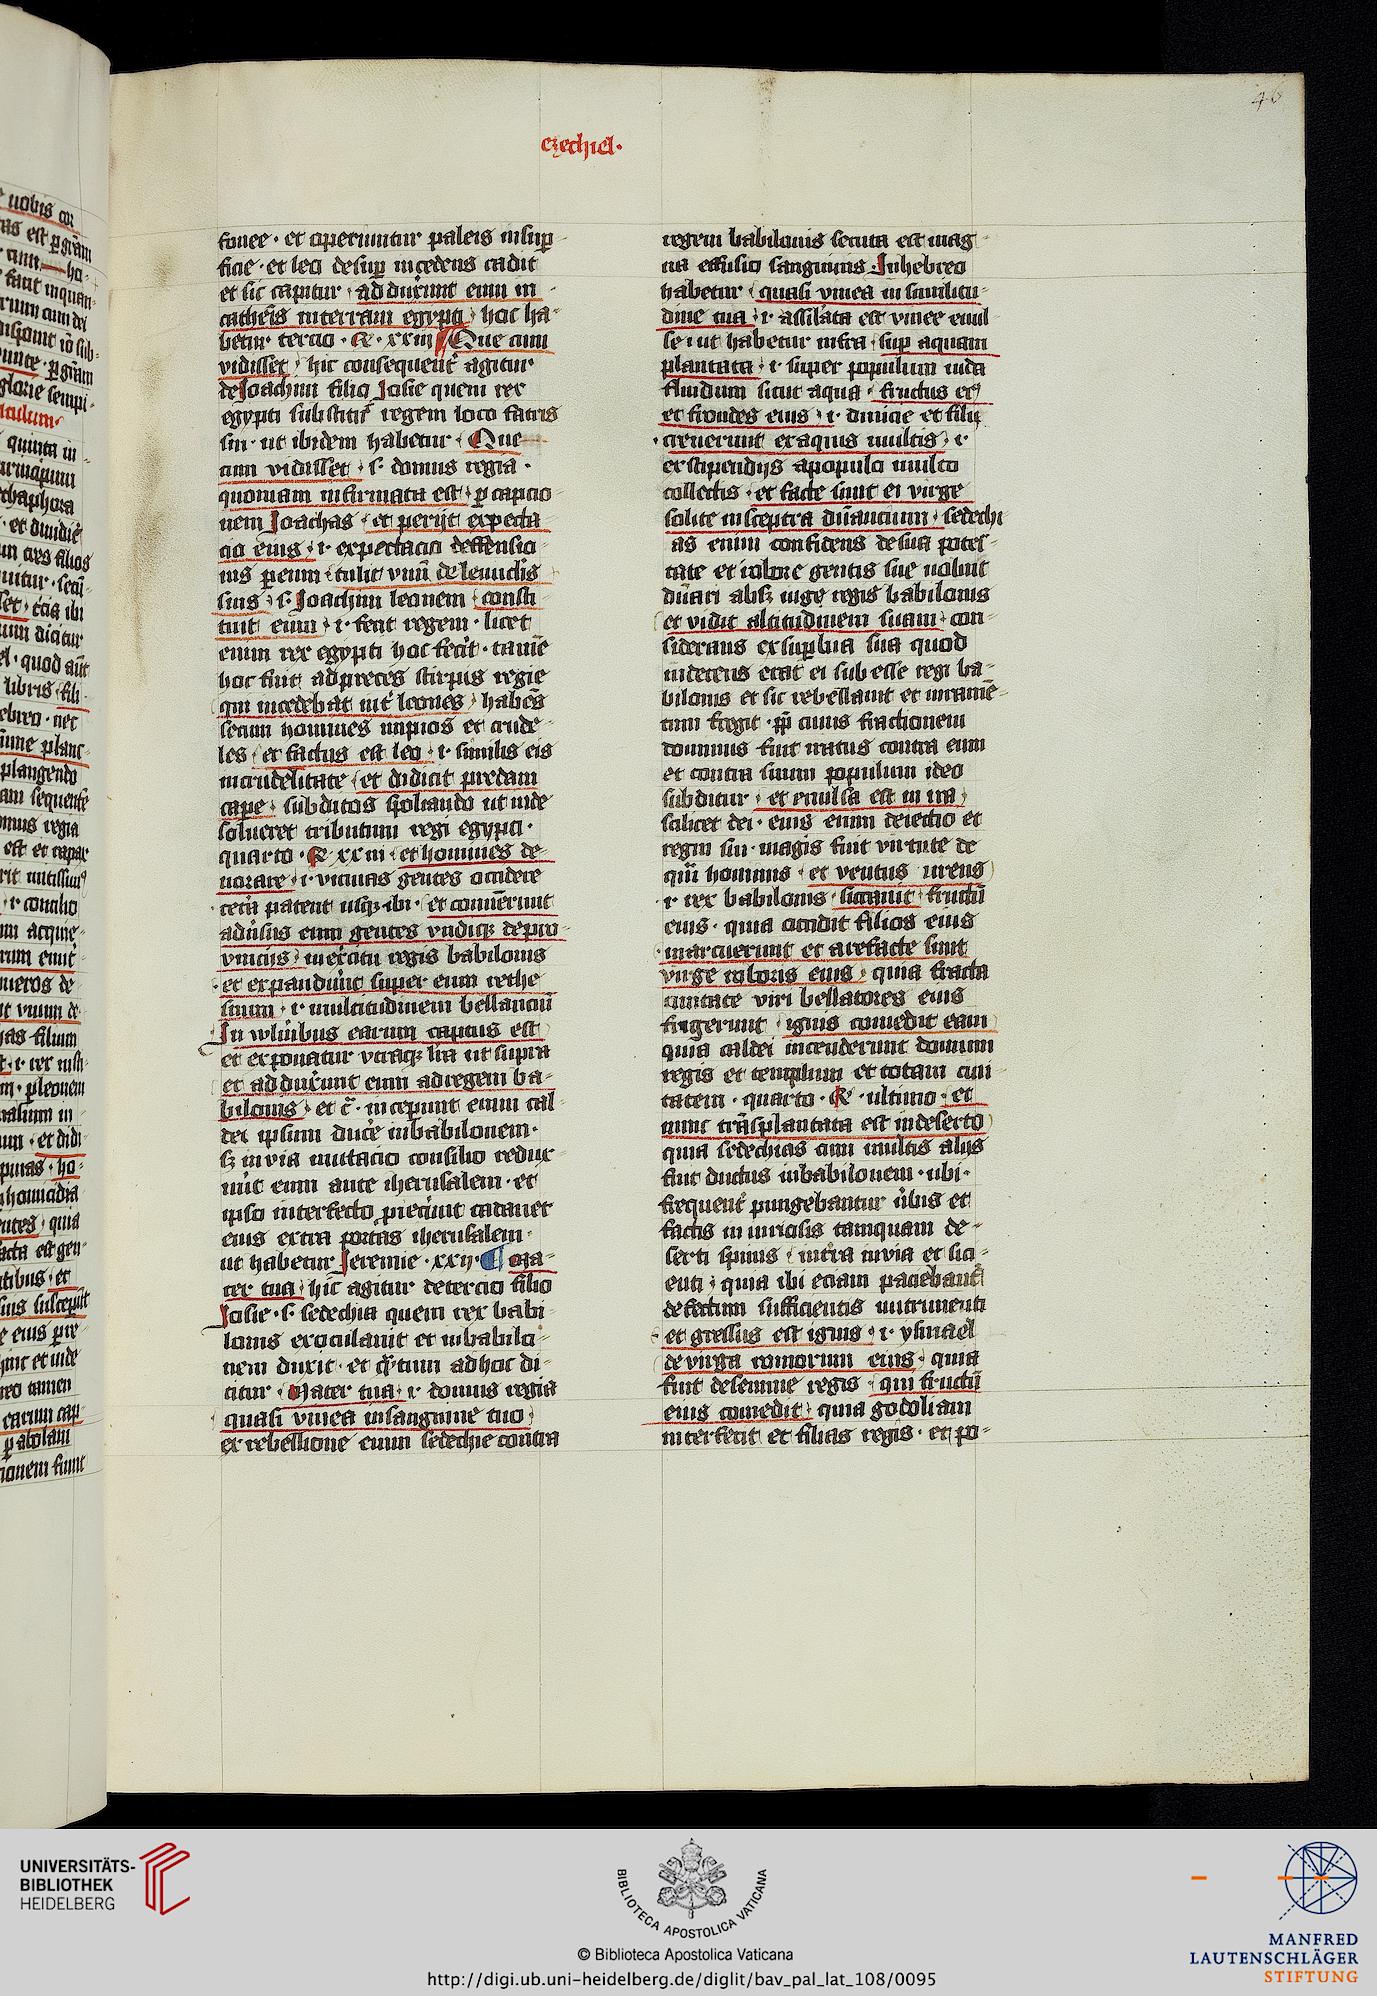 46
ezechiel·
fouee · et operiuntur paleis insup
ficie · et leo desup incedens cadit
et sic capitur · adduxerunt eum in
cathenis in terram egypti hoc ha-
betur tercio · Re · xxiii Que cum
vidisset hic consequent agitur
de Joachim filio Josie quem rex
egypti substituit regem loco fratris
sui · ut ibidem habetur · Que
cum vidisset · s· domus regia ·
quoniam infirmata est · p captio
nem Joachas · et perijt expecta
cio eius · i· expectacio deffensio
nis p eum · tulit vnum de leunculis
suis · s· Joachim leonem · consti-
tuit eum · i· fecit regem · licet
enim rex egypti hoc fecit · tamen
hoc fuit ad preces stirpis regie
qui incedebat inter leones habens
secum homines impios et crude-
les · et factus est leo · i· similis eis
in crudelitate · et didicit predam
capere · subditos spoliando ut inde
solueret tributum regi egypti ·
quarto · Re xxiii · et homines de-
uorare · i· vicinas gentes occidere
cetera patent usque ibi · et conuenerunt
aduersus eum gentes vndique de pro-
vincijs in exercitu regis babilonis
et expanderunt super eum rethe
suum · i· multitudinem bellancium
In vulneribus earum captus est
et exponatur vtraque littera ut supra
et adduxerunt eum ad regem ba-
bilonis et c· inceperunt enim cal-
dei ipsum ducere in babilonem ·
sed in via mutato consilio redux-
erunt eum ante iherusalem · et
ipso interfecto proiecerunt cadauer
eius extra portas iherusalem ·
ut habetur Jeremie · xxij · ¶ Ma-
ter tua hic agitur de tercio filio
Josie · s· sedechia quem rex babi
lonis exoculauit et in babilo-
nem duxit · et quantum ad hoc di-
citur · Mater tua i· domus regia
quasi vinea in sanguine tuo
ex rebellione enim sedechie contra
regem babilonis secuta est mag-
na effusio sanguinis · In hebreo
habetur · quasi vinea in similitu-
dine tua · i· assilata est vinee euul-
se · ut habetur infra · sup aquam
plantata · i· super populum iuda
fluidum sicut aqua · fructus ei
et frondes eius · i· diuicie et filij
creuerunt ex aquis multis · i·
ex stipendijs a populo multo
collectis · et facte sunt ei virge
solite in sceptra dominancium · sedechi
as enim confidens de sua potes-
tate et robore gentis sue noluit
dnari absque iugo regis babilonis
et vidit altitudinem suam · con-
siderans ex superbia sua quod
indecens erat ei subesse regi ba-
bilonis et sic rebellauit et iuramen-
tum fregit · propter cuius fractionem
dominus fuit iratus contra eum
et contra suum populum ideo
subditur · et euulsa est in ira
scilicet dei · eius enim deiectio et
regni sui · magis fuit virtute dei
quam hominis · et ventus urens
i· rex babilonis · siccauit fructum
eius · quia occidit filios eius
marcuerunt et arefacte sunt
virge roboris eius quia fracta
ciuitate viri bellatores eius
fugerunt · ignis comedit eam
quia caldei incenderunt domum
regis et templum et totam ciui-
tatem · quarto · Re · ultimo · et
nunc transplantata est in deserto
quia sedechias cum multis alijs
fuit ductus in babilonem · ubi ·
frequenter pungebantur verbis et
factis iniuriosis tamquam de-
serti spinis · in terra inuia et sici-
enti · quia ibi eciam paciebantur
defectum sufficientis nutrimenti
et egressus est ignis · i· ysmael
de virga ramorum eius · quia
fuit de semine regis · qui fructum
eius comedit · quia godoliam
interfecit et filias regis · et po-
UNIVERSITÄTS-
BIBLIOTHEK
HEIDELBERG
BIBLIOTECA APOSTOLICA VATICANA
© Biblioteca Apostolica Vaticana
http://digi.ub.uni-heidelberg.de/diglit/bav_pal_lat_108/0095
MANFRED
LAUTENSCHLÄGER
STIFTUNG